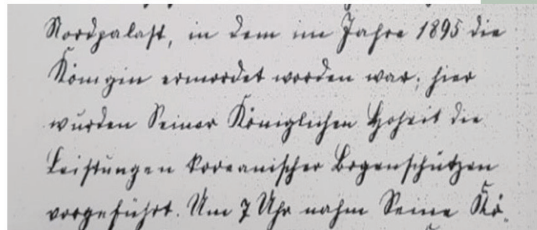 Nordpalast, in dem im Jahre 1895 die
Königin ermordet worden war; hier
wurden Seiner Königlichen Hoheit die
Leistungen koreanischer Bogenschützen
vorgeführt. Um 7 Uhr nahm Seine Kö-